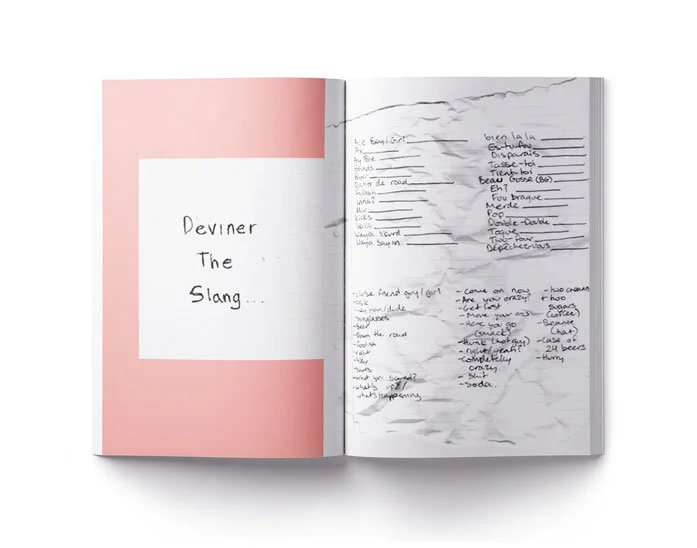 Deviner
The
Slang...
Ace Boy/Girl
Ax
Ay Bie
Down de road
Inna?
Kicks
Waya
Waya Sayin
bien la la
Es-tu fou
Disparais
Tasse-toi
Tient toi
Beau Gosse (BG)
Eh?
Fou braque
Merde
Pop
Double-Double
Toque
Two-four
Dépêchez-vous
-close friend guy/girl
-ask
-hey man/dude
-sunglasses
-beer
-Down the road
-foolish
-right
-what you scared?
-what's up?/
what's happening
-Come on now
-Are you crazy?
-Get lost
-Move your ass
-Here you go
(smack)
-Hunk (hot guy)
-right/yeah?
-completely
crazy
-Shit
-Soda
-two creams
+ two
sugars
(coffee)
-Beanie
(hat)
-Case of
24 beers
-Hurry